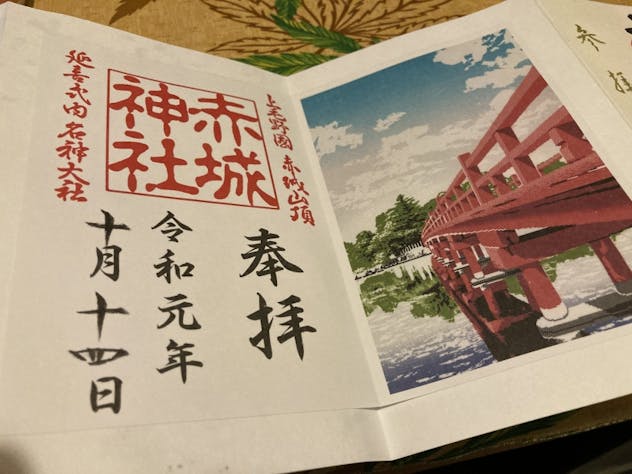 参拝
上毛野國 赤城山頂
奉拝
赤城
神社
令和元年
延喜式内名神大社
十月十四日